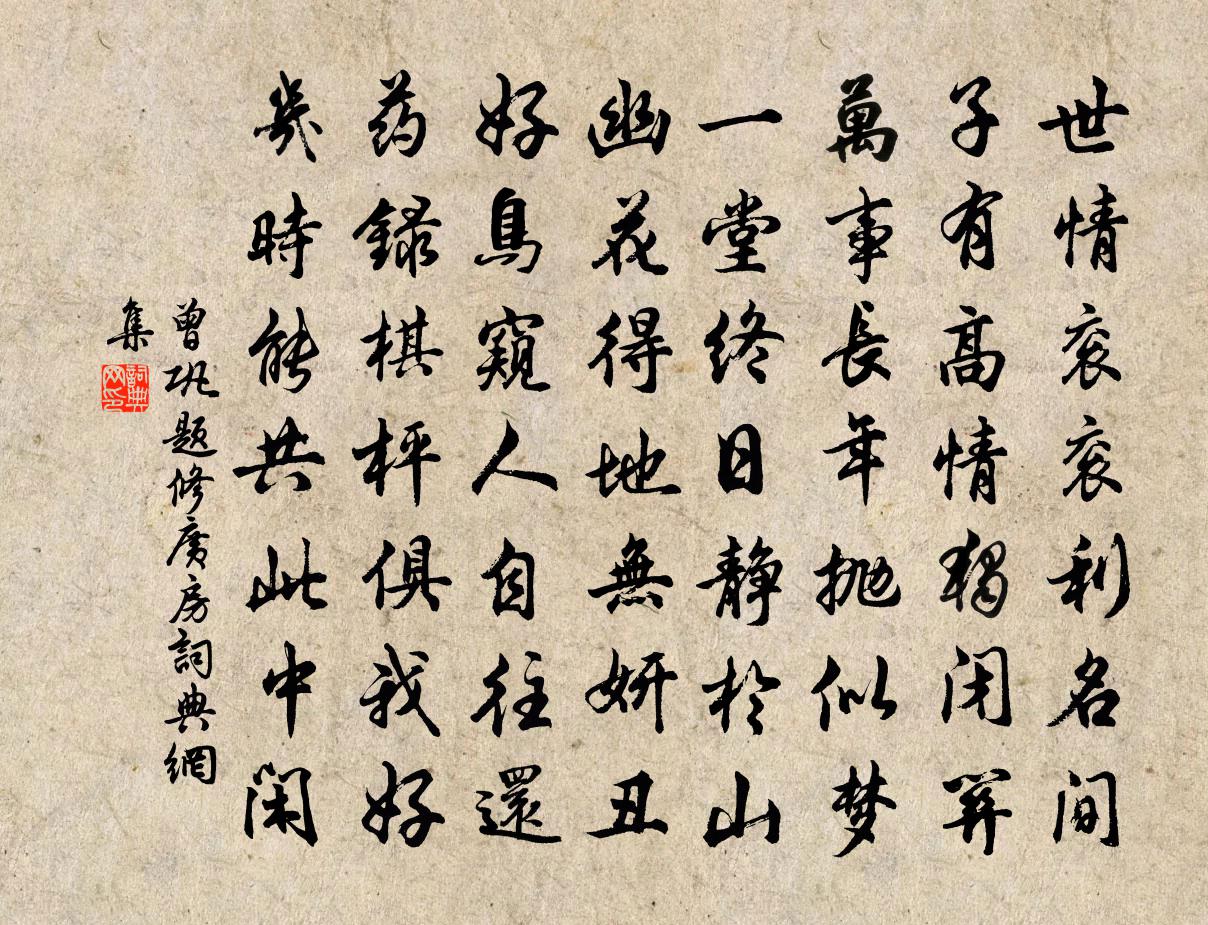 世情衮衮利名間
子有高情獨闭關
萬事長年抛似梦
一堂终日静於山
幽花得地無妍丑
好鳥窺人自往還
药錄棋枰俱我好
幾時能共此中闲
曾巩題修廣房詞典網
集
詞典网印